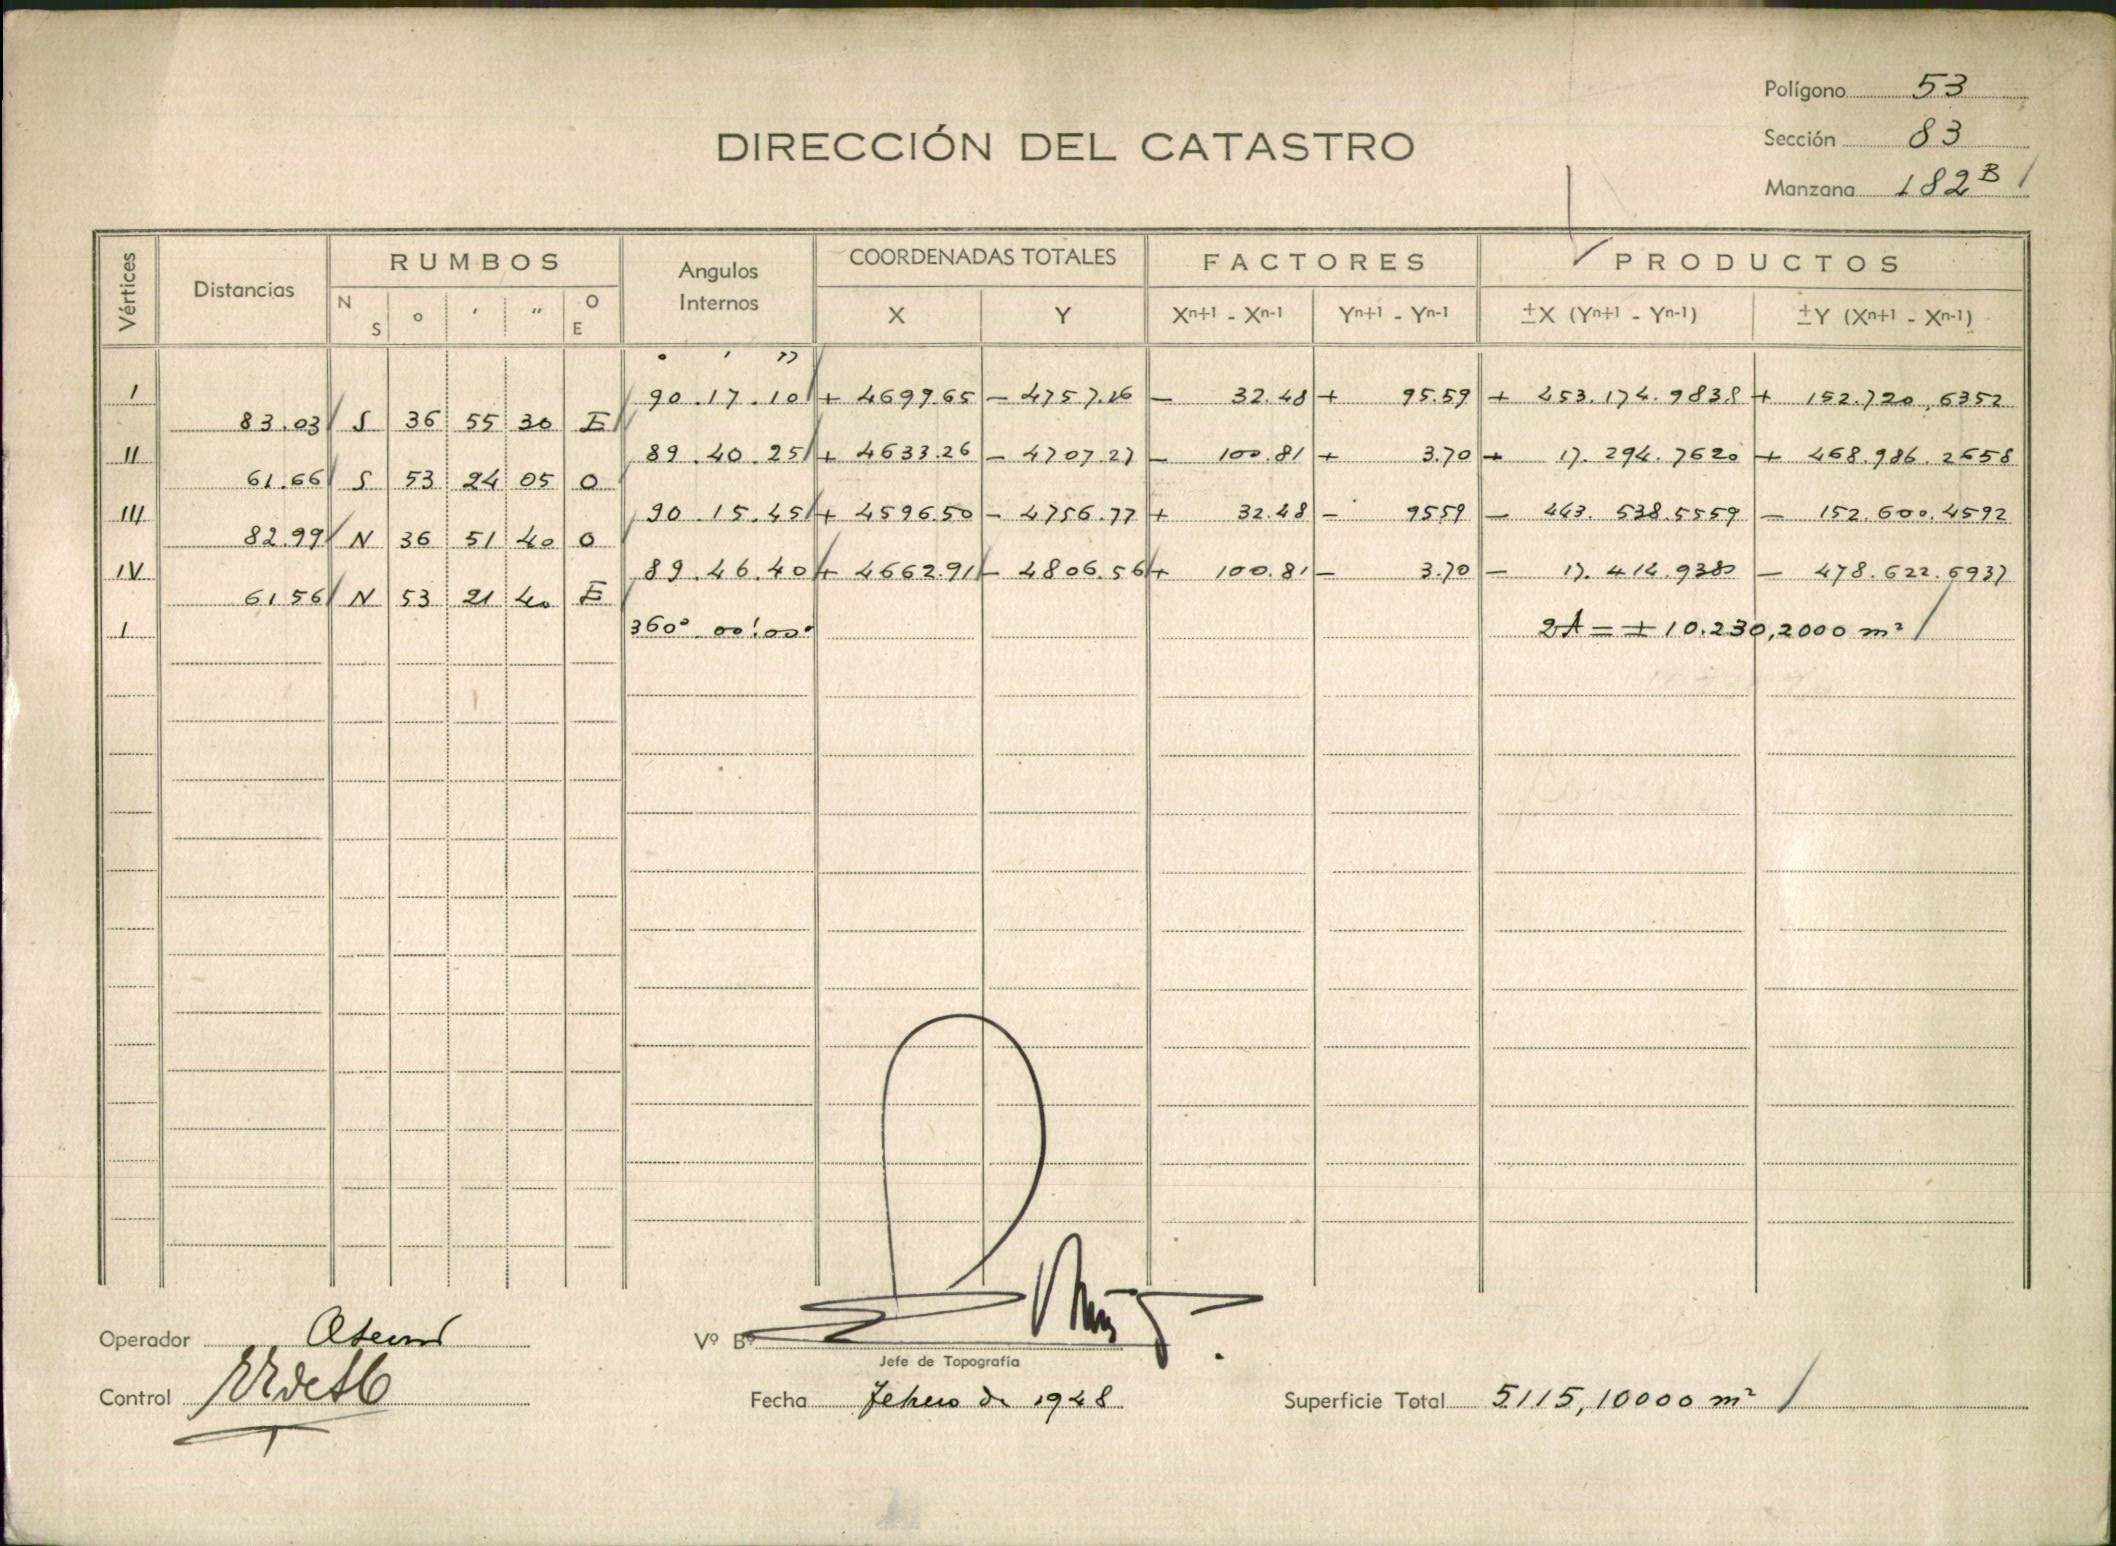 Polígono 53
DIRECCIÓN DEL CATASTRO
Sección 83
Manzana 182 B
Vértices Distancias RUMBOS Angulos Internos COORDENADAS TOTALES FACTORES PRODUCTOS
N S ° ' " O E X Y Xn+1 - Xn-1 Yn+1 - Yn-1 ±X (Yn+1 - Yn-1) ±Y (Xn+1 - Xn-1)
° ' "
I 90.17.10 + 4699.65 - 4757.16 - 32.48 + 95.59 + 453.174.9838 + 152.720,6352
83.03 S 36 55 30 E
II 89.40.25 + 4633.26 - 4707.27 - 100.81 + 3.70 + 17.294.7620 + 468.986.2658
61.66 S 53 24 05 O
III 90.15.45 + 4596.50 - 4756.77 + 32.48 - 9559 - 443.538.5559 - 152.600.4592
82.99 N 36 51 40 O
IV 89.46.40 + 4662.91 - 4806.56 + 100.81 - 3.70 - 17.414.9380 - 478.622.6937
61.56 N 53 21 40 E
I 360° 00' 00" 2A = + 10.230,2000 m²
Operador
Vº Bº
Jefe de Topografía
Control
Fecha Febrero de 1948
Superficie Total 5115,10000 m²